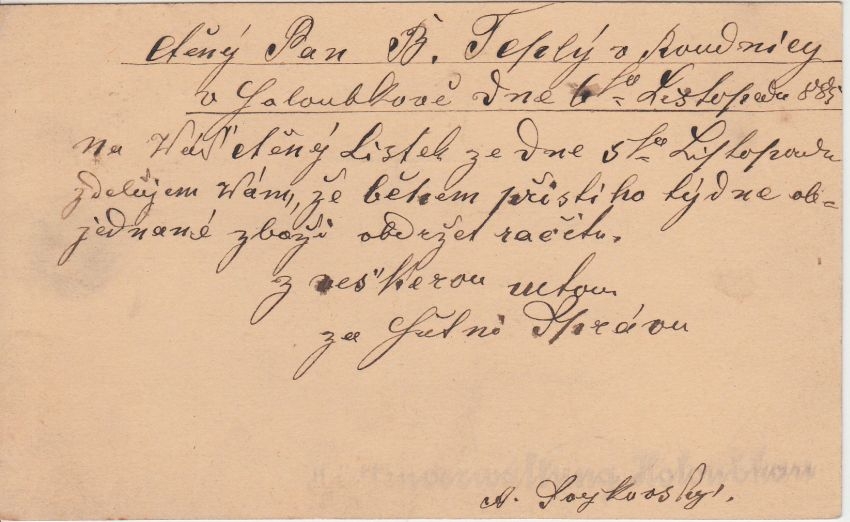 ctěný Pan B. Teplý v Roudnicy
v Holoubkově dne 6ho Listopadu 885
na Váš ctěný Listek ze dne 5ho Listopadu
zdelujem Vám, že během přistiho týdne ob=
jednané zboži obdržet račitu.
z veškerou uctou
za Hutni Správu
Hüttenverwaltung Holoubkau